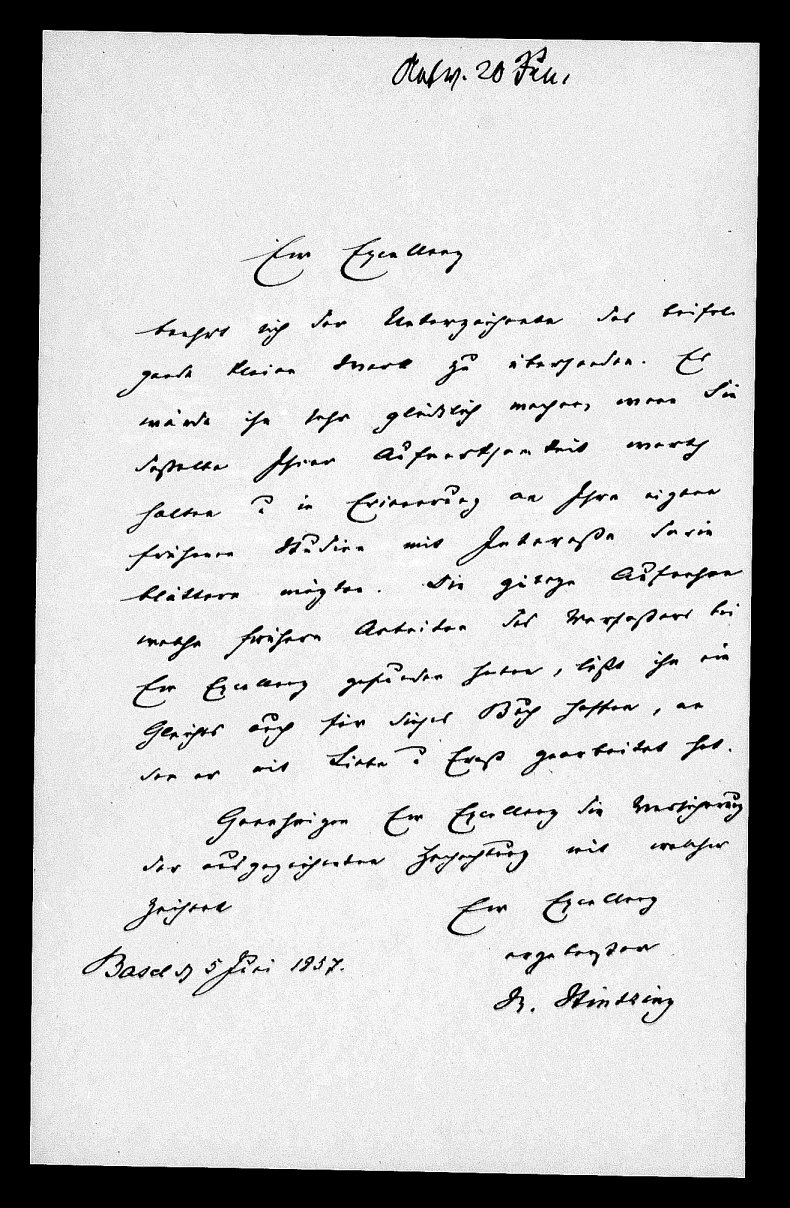 Antw. 20 Jun.
Ew Excellenz
beehrt sich der Unterzeichnete das beifol-
gende kleine Werk zu übersenden. Es
würde ihn sehr glücklich machen, wenn Sie
dasselbe Ihrer Aufmerksamkeit werth
halten u in Erinnerung an Ihre eigene
früheren Studien mit Interesse darin
blättern mögten. Die gütige Aufnahme
welche frühere Arbeiten des Verfassers bei
Ew Excellenz gefunden haben, läßt ihn ein
Gleiches auch für dieses Buch hoffen, an
dem er mit Liebe u Ernst gearbeitet hat.
Genehmigen Ew Excellenz die Versicherung
der ausgezeichneten Hochachtung mit welcher
zeichnet
Ew Excellenz
ergebenster
Basel d 5 Juni 1857.